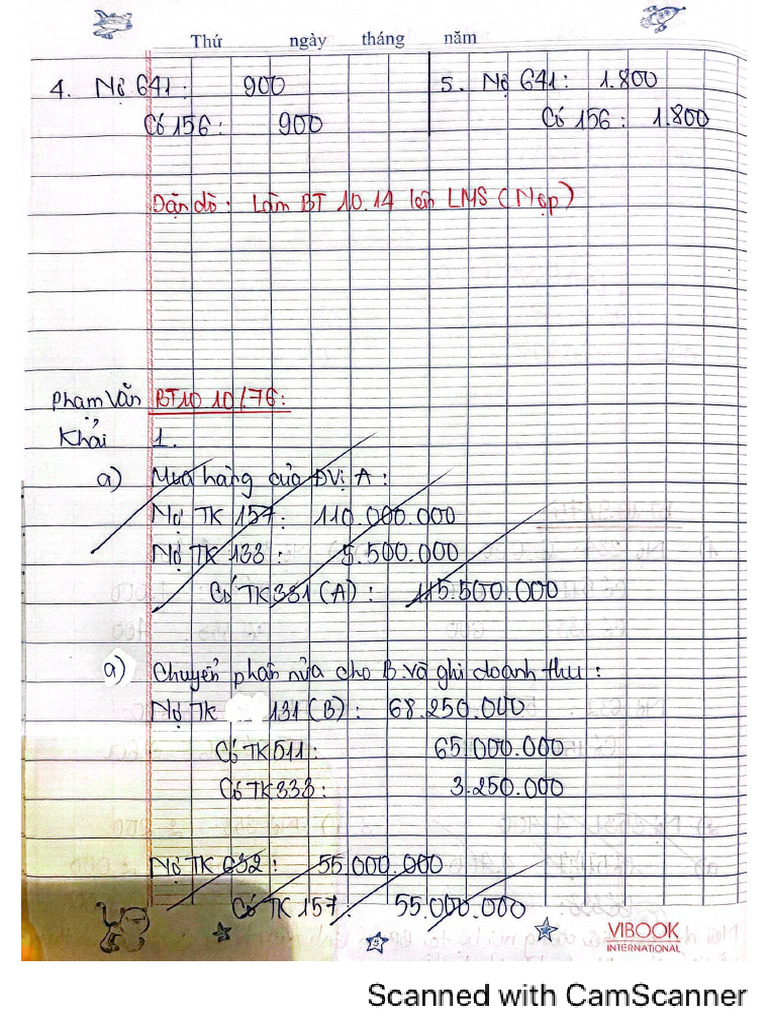 Thứ ngày tháng năm
4. Nợ 641: 900
Có 156: 900
5. Nợ 641: 1.800
Có 156: 1.800
Dặn dò: Làm BT 10.14 lên LMS (Nộp)
Phạm Văn Khải
BT10 10/76:
1.
a) Mua hàng của ĐVị A:
Nợ TK 157: 110.000.000
Nợ TK 133: 5.500.000
Có TK 331 (A): 115.500.000
a) Chuyển phân nửa cho B và ghi doanh thu:
Nợ TK 131 (B): 68.250.000
Có TK 511: 65.000.000
Có TK 333: 3.250.000
Nợ TK 632: 55.000.000
Có TK 157: 55.000.000
VIBOOK
INTERNATIONAL
Scanned with CamScanner